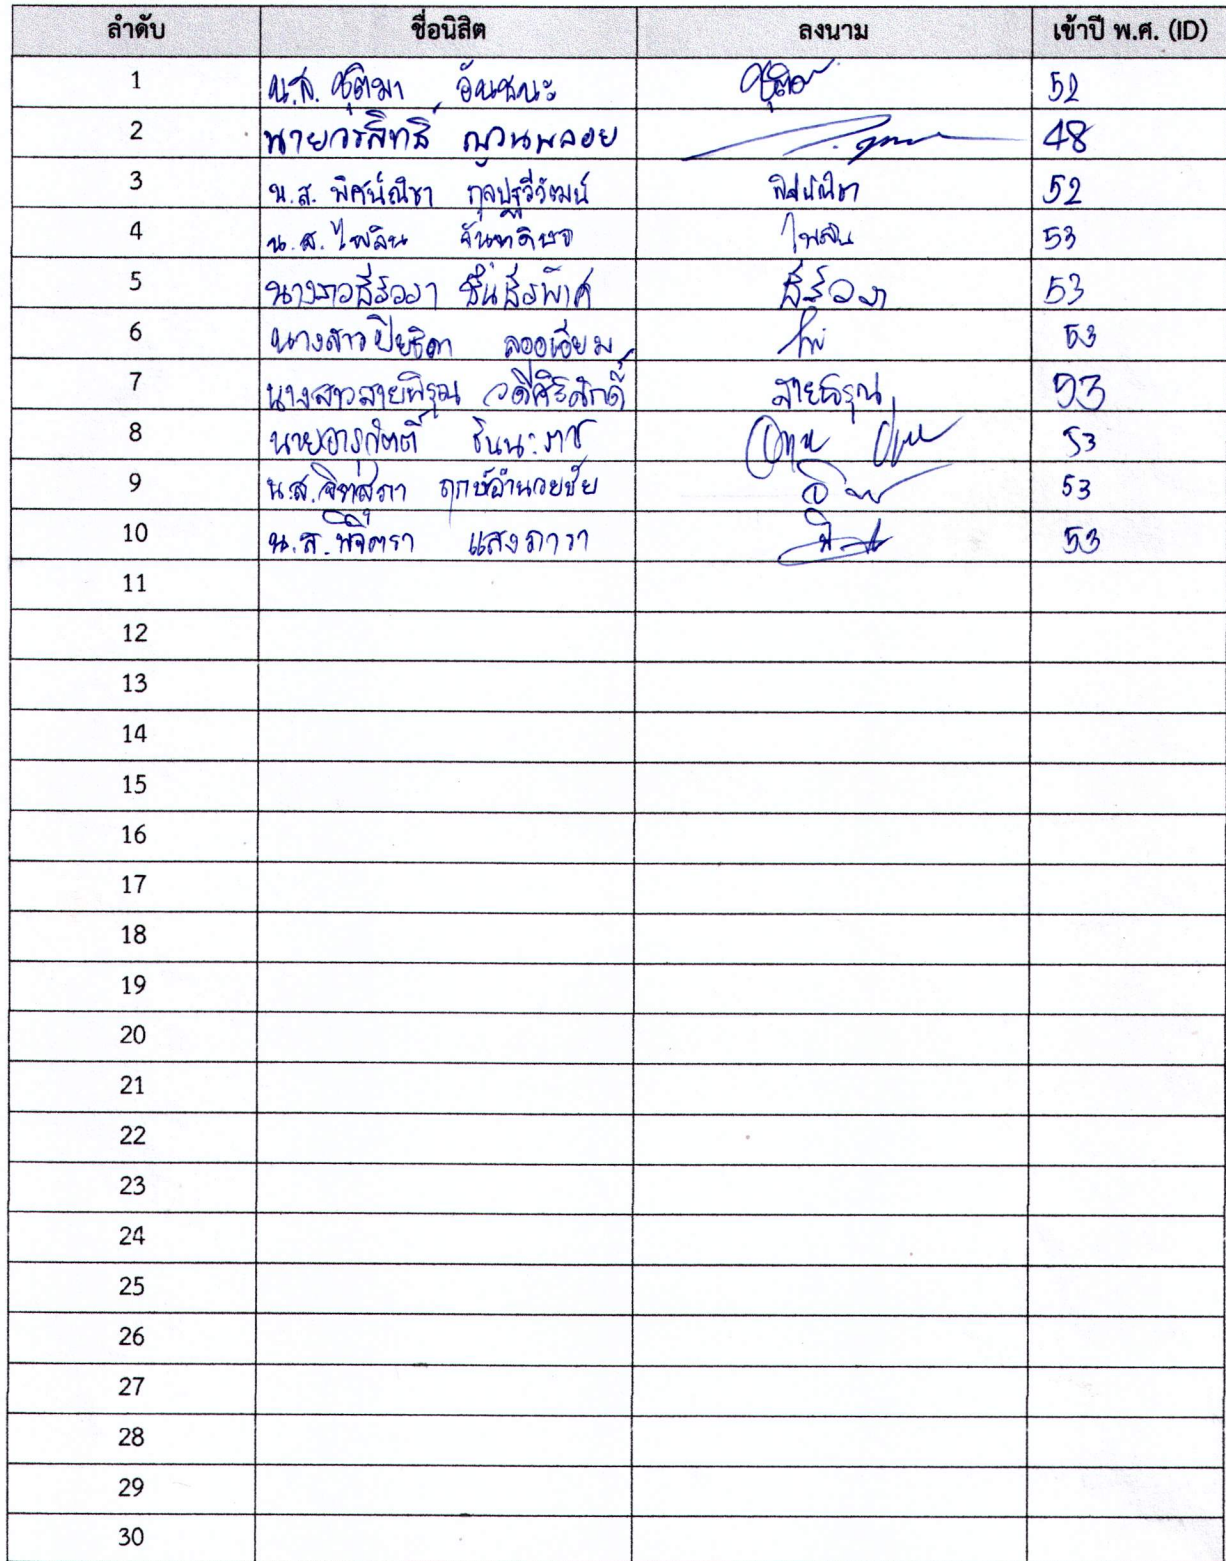 ลำดับ ชื่อนิสิต ลงนาม เข้าปี พ.ศ. (ID)
1 น.ส. ชุติมา อันชนะ 52
2 นายวรสิทธิ์ 48
3 น.ส. พิศน์ณิชา กุลปฐวีวัฒน์ พิศน์ณิชา 52
4 น.ส. ไพลิน จันทดิษฐ ไพลิน 53
5 นางสาวสิริวรา ชื่นสิริพิศ สิริวรา 53
6 นางสาวปิยธิดา ลออเอี่ยม 53
7 นางสาวสายพิรุณ วดีศิริศักดิ์ สายพิรุณ 53
8 นาย ชินนะราช 53
9 น.ส. จิตสุภา ฤกษ์อำนวยชัย 53
10 น.ส. พิจิตรา แสงดารา 53
11
12
13
14
15
16
17
18
19
20
21
22
23
24
25
26
27
28
29
30